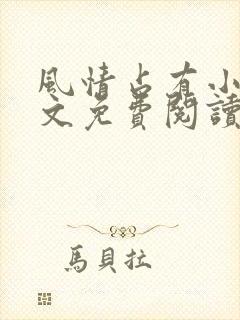 風情占有小
文免費閱讀
馬貝拉